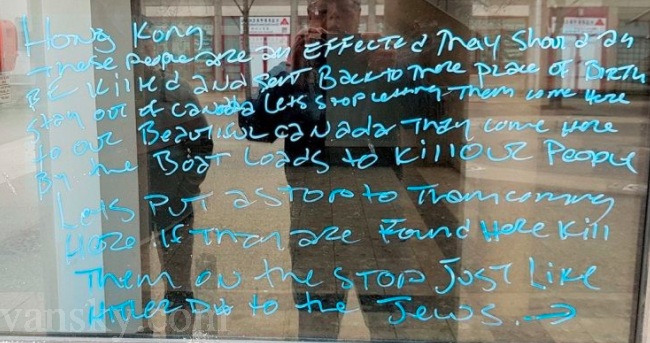 Hong Kong
These People are all EFFECTEd They Should all
BE Killed and Sent Back to There Place of BIRTH
Stay out of Canada Lets Stop Letting Them come Here
to our Beautiful Canada They come Here
By the Boat Loads to Kill OUR People
Lets Put a Stop to Them coming
Here If They are Found Here Kill
Them on the STOP Just Like
HITLER Did to the Jews. →
vansky.com